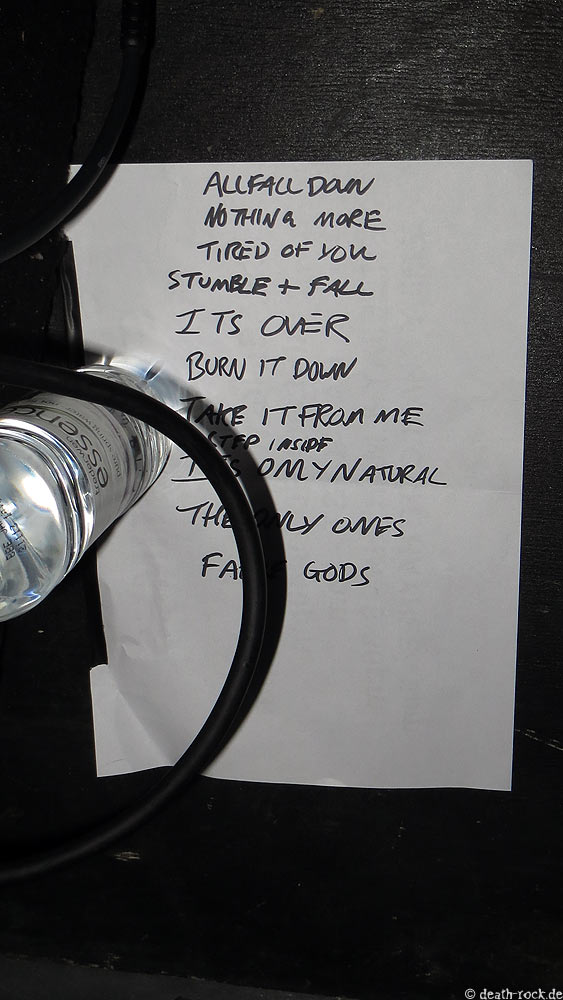 ALL FALL DOWN
NOTHING MORE
TIRED OF YOU
STUMBLE + FALL
ITS OVER
BURN IT DOWN
TAKE IT FROM ME
STEP INSIDE
ITS ONLY NATURAL
THE ONLY ONES
FA E GODS
essen
© death-rock.de